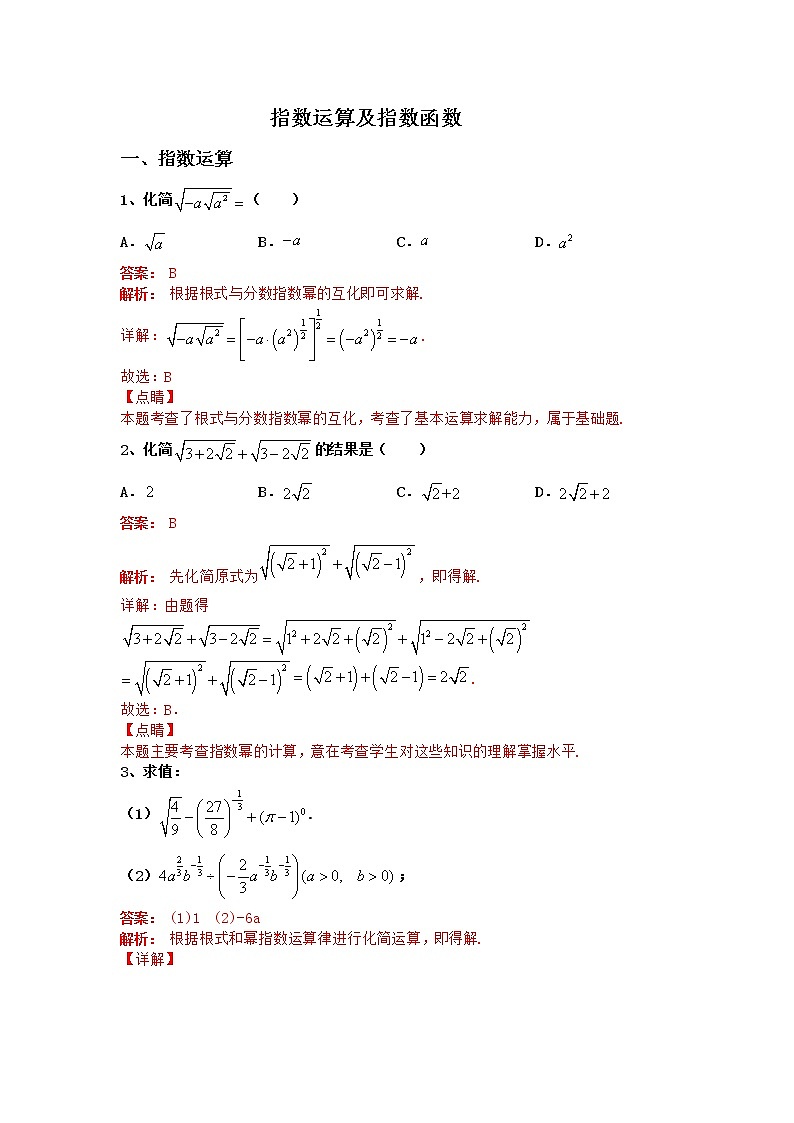 指数运算及指数函数
一、指数运算
1、化简√(-a√(a²)) =（　　）
A. √a　　B. -a　　C. a　　D. a²
答案： B
解析： 根据根式与分数指数幂的互化即可求解.
详解：√(-a√(a²)) = [-a·(a²)^(1/2)]^(1/2) = (-a²)^(1/2) = -a.
故选：B
【点睛】
本题考查了根式与分数指数幂的互化，考查了基本运算求解能力，属于基础题.
2、化简√(3+2√2) + √(3-2√2) 的结果是（　　）
A. 2　　B. 2√2　　C. √2+2　　D. 2√2+2
答案： B
解析： 先化简原式为√((√2+1)²) + √((√2-1)²)，即得解.
详解：由题得
√(3+2√2) + √(3-2√2) = √(1²+2√2+(√2)²) + √(1²-2√2+(√2)²)
= √((√2+1)²) + √((√2-1)²) = (√2+1)+(√2-1) = 2√2.
故选：B.
【点睛】
本题主要考查指数幂的计算，意在考查学生对这些知识的理解掌握水平.
3、求值：
（1）√(4/9) - (27/8)^(-1/3) + (π-1)⁰.
（2）4a^(2/3)b^(-1/3) ÷ (-2/3 a^(-1/3)b^(-1/3))(a>0, b>0)；
答案： (1)1 (2)-6a
解析： 根据根式和幂指数运算律进行化简运算，即得解.
【详解】